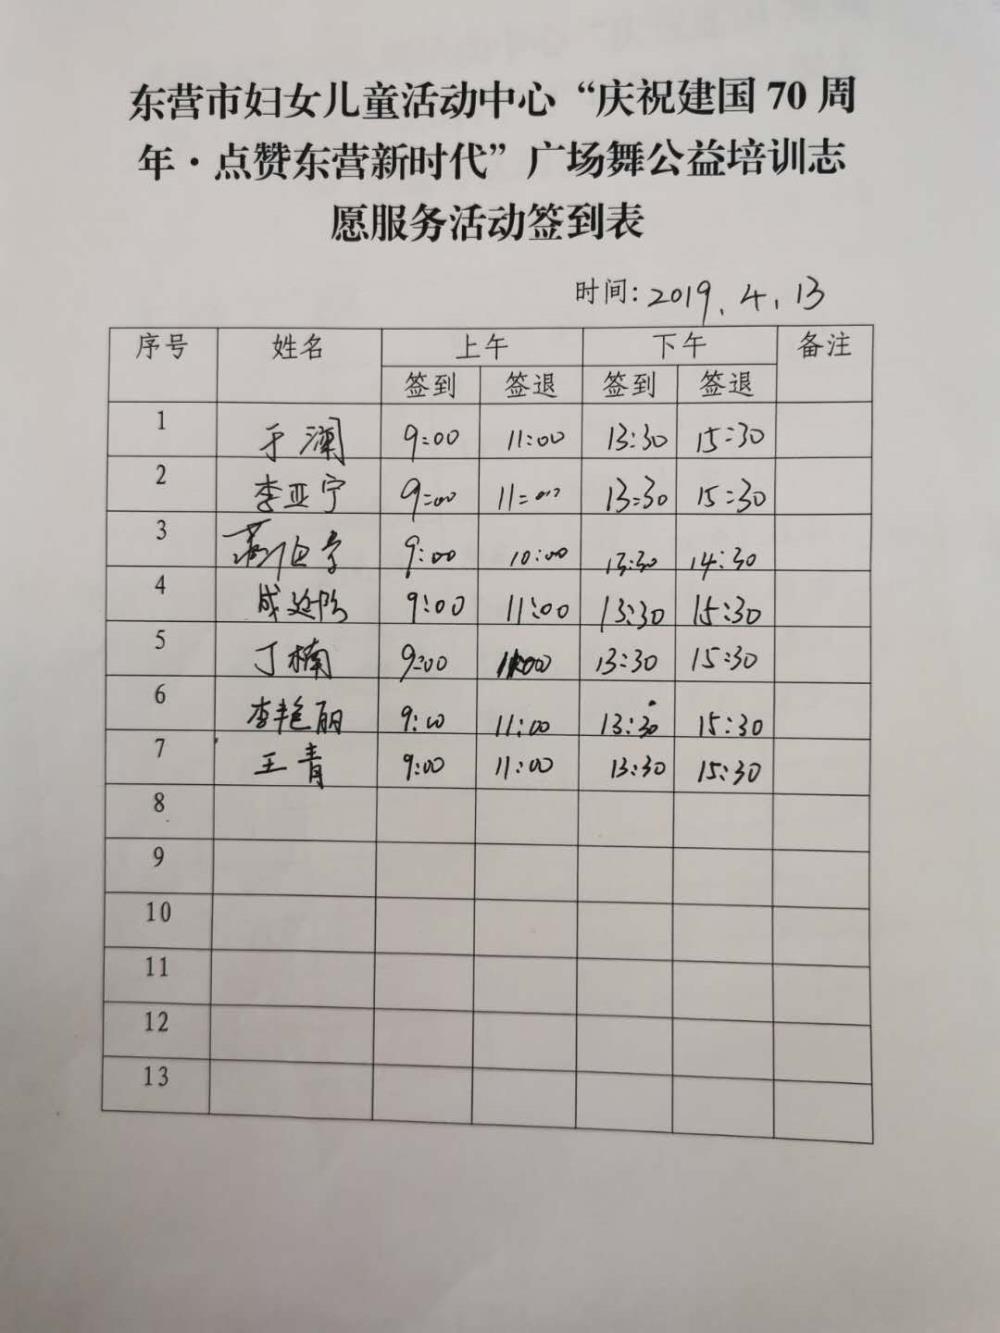 东营市妇女儿童活动中心“庆祝建国 70 周
年·点赞东营新时代”广场舞公益培训志
愿服务活动签到表
时间: 2019.4.13
序号 姓名 上午 下午 备注
签到 签退 签到 签退
1 于澜 9:00 11:00 13:30 15:30
2 李亚宁 9:00 11:00 13:30 15:30
3 9:00 10:00 13:30 14:30
4 9:00 11:00 13:30 15:30
5 丁楠 9:00 11:00 13:30 15:30
6 李艳丽 9:00 11:00 13:30 15:30
7 王青 9:00 11:00 13:30 15:30
8
9
10
11
12
13